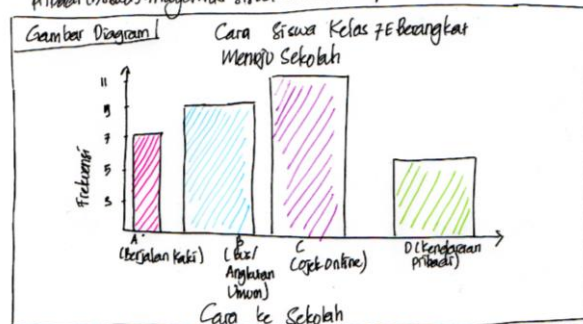 Gambar Diagram
Cara Siswa Kelas 7E Berangkat
Menuju Sekolah
Frekuensi
11
9
7
5
3
A
(Berjalan Kaki)
B
(Bus/
Angkutan
Umum)
C
(Ojek Online)
D (Kendaraan
Pribadi)
Cara ke Sekolah